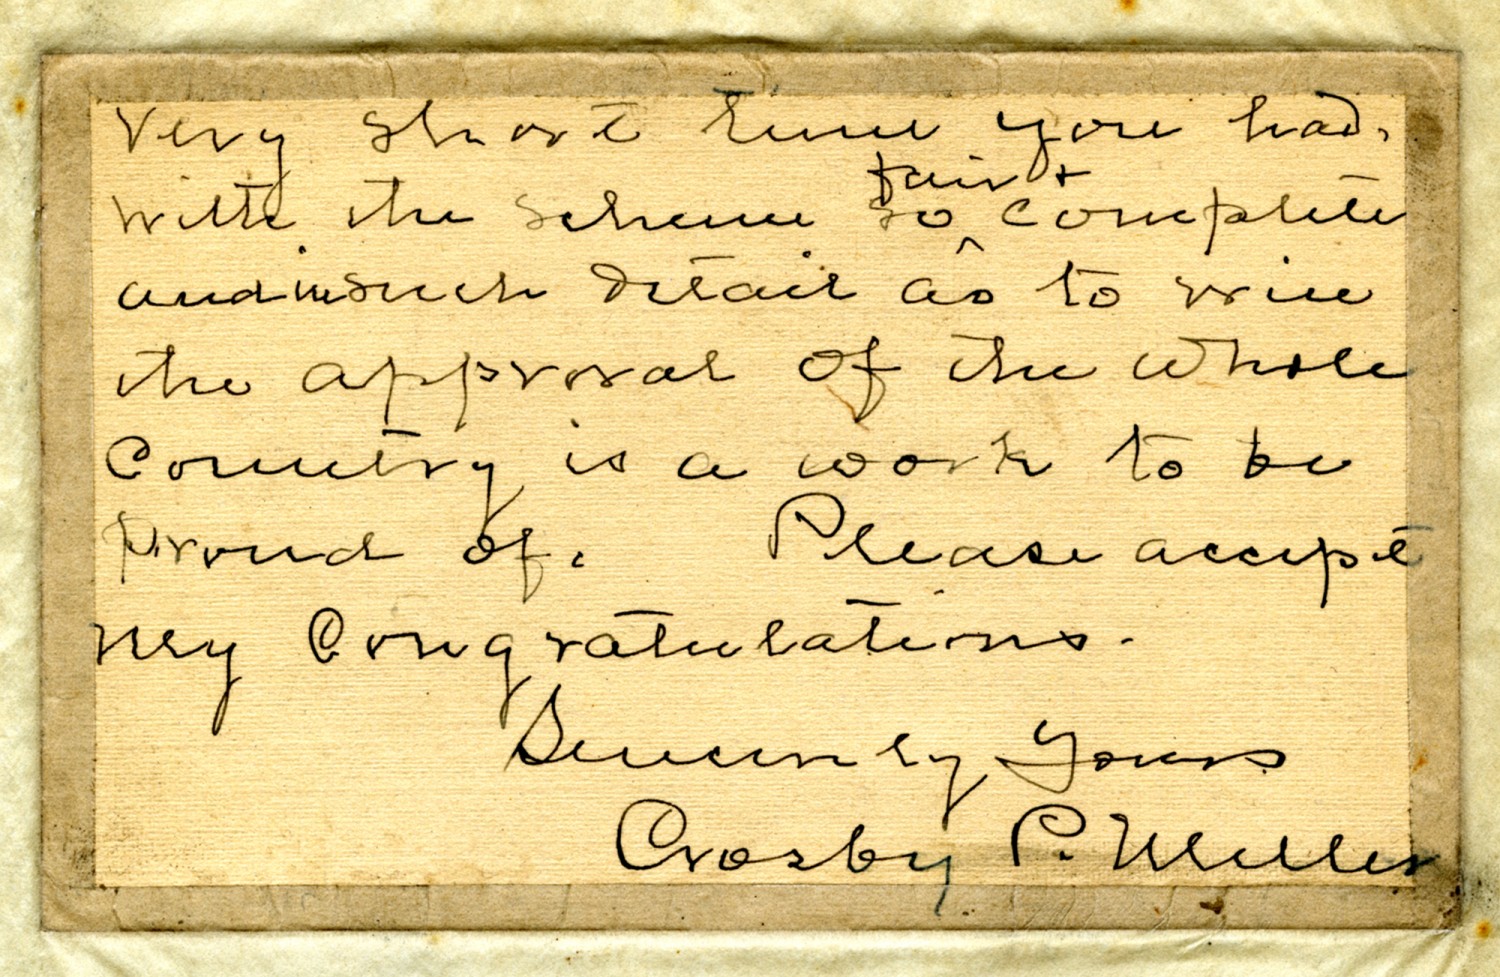 Very short time you had,
with the scheme so fair + complete
and in such detail as to win
the approval of the whole
Country is a work to be
proud of. Please accept
my Congratulations.
Sincerely Yours
Crosby P. Miller